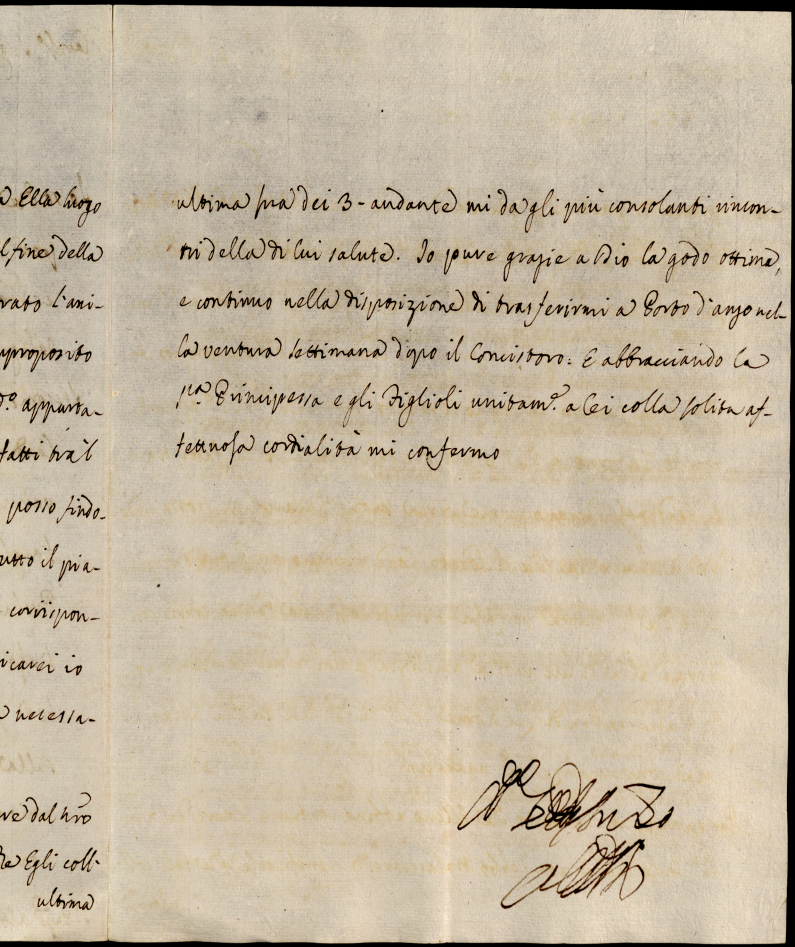 a Ella luogo
l fine della
rato l'ani-
approposito
d.o apparta-
fatti tra'l
posso findo-
utto il pia-
corrispon-
icarei io
necessa-
re dal nro
Egli coll'
ultima
ultima sua dei 3-andante mi da gli più consolanti rincon-
tri della di lui salute. Io pure grazie a Dio la godo ottima,
e continuo nella disposizione di trasferirmi a Porto d'anzo nel-
la ventura settimana dopo il Concistoro: E abbracciando la
Principessa e gli Figlioli unitam.e a lei colla solita af-
fettuosa cordialità mi confermo